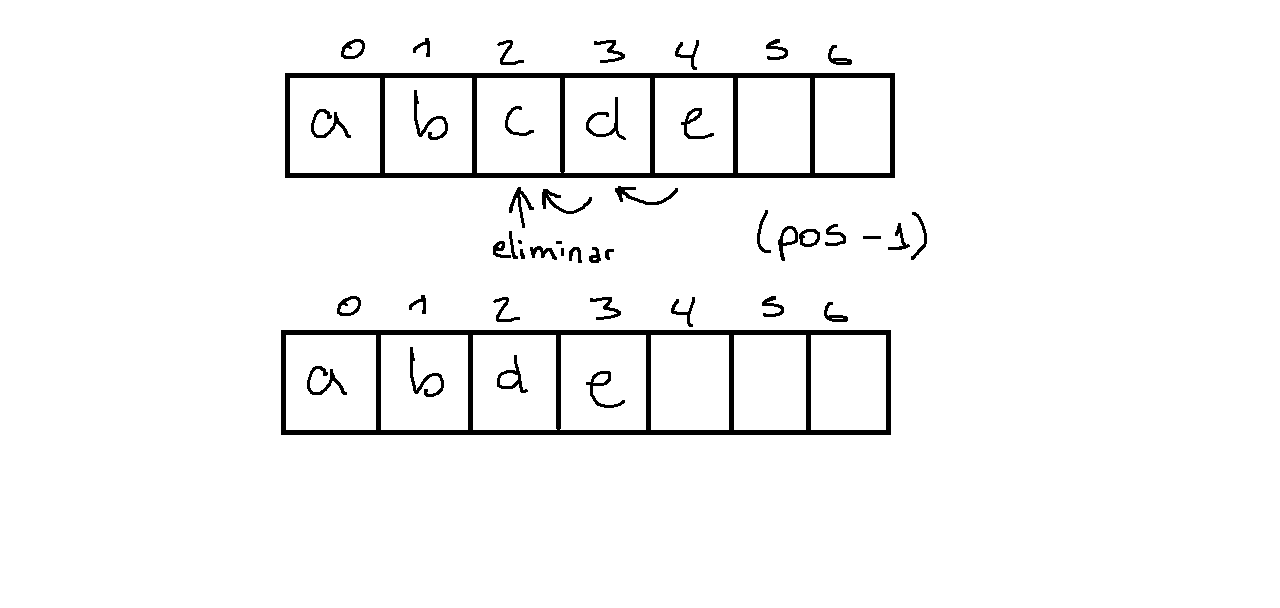 0 1 2 3 4 5 6
a b c d e
eliminar
(pos - 1)
0 1 2 3 4 5 6
a b d e